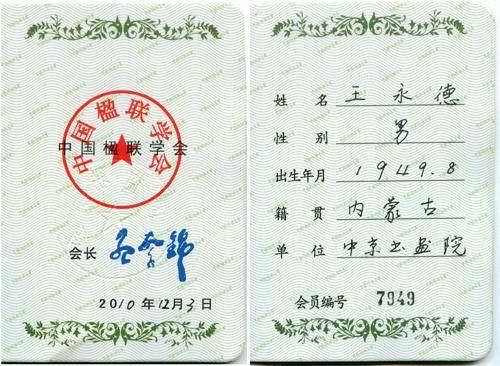 中国楹联学会
中国楹联学会
会长 孟繁錦
2010年12月3日
姓名 王永德
性别 男
出生年月 1949.8
籍贯 内蒙古
单位 中京书画院
会员编号 7949